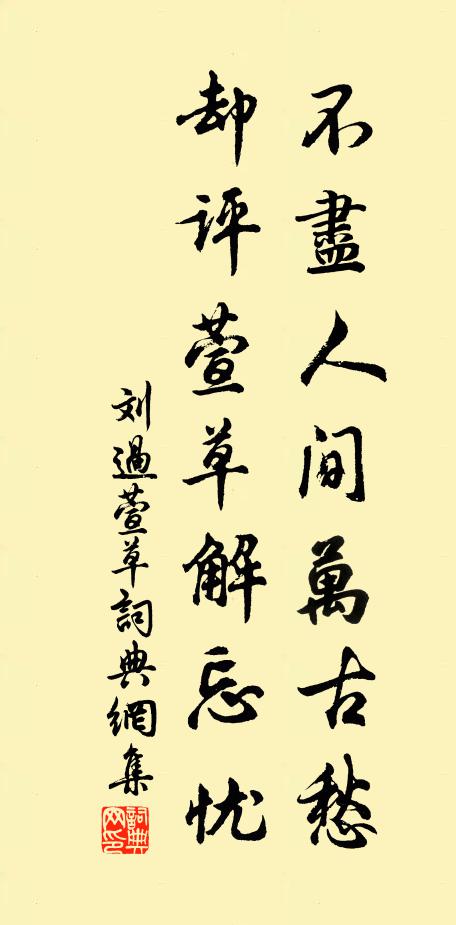 不盡人间萬古愁
却評萱草解忘忧
刘過萱草詞典網集
詞典網印